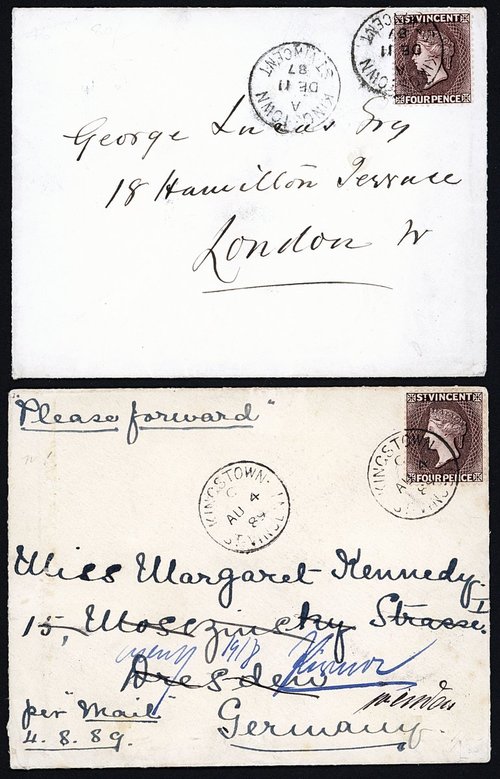 ST VINCENT
FOUR PENCE
KINGSTOWN
A
DE 11
87
ST VINCENT
KINGSTOWN
A
DE 11
87
ST VINCENT
George Lucas Esq
18 Hamilton Terrace
London W
"Please forward"
ST VINCENT
FOUR PENCE
KINGSTOWN
C
AU 4
89
ST VINCENT
KINGSTOWN
C
AU 4
89
ST VINCENT
Miss Margaret Kennedy.
15, Moszinsky Strasse. I
19/8
Dresden
per "Mail"
4. 8. 89.
Germany.